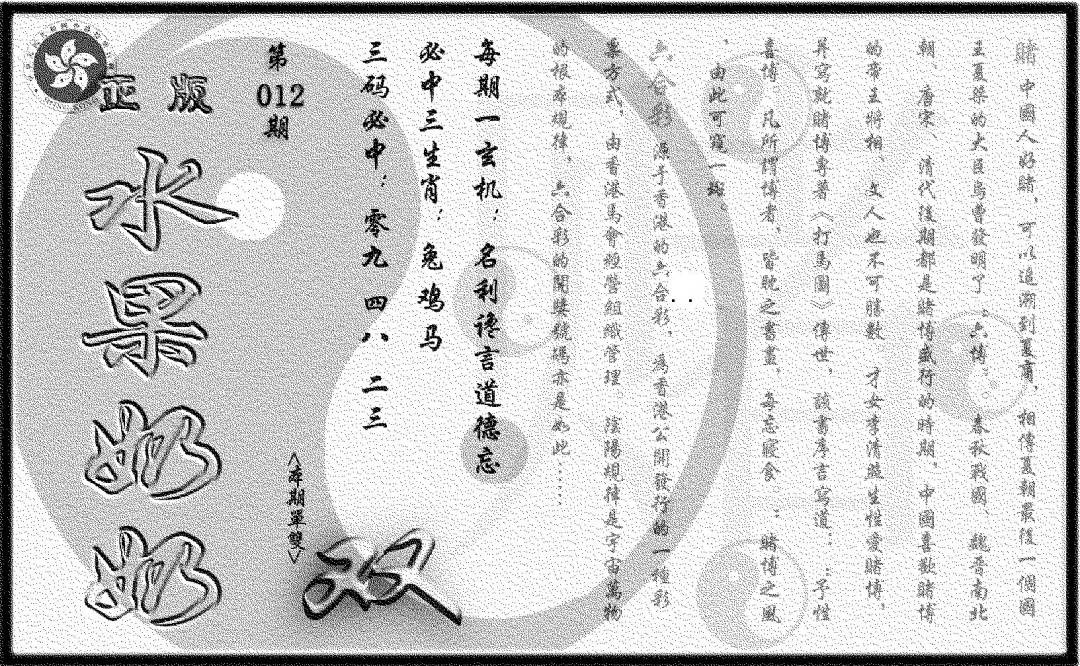 正版
水果奶奶
第
012
期
每期一玄机：名利谗言道德忘
必中三生肖：兔鸡马
三码必中：零九 四八 二三
<本期單雙>
双
賭 中國人好賭，可以追溯到夏商，相傳夏朝最後一個國
王夏桀的大臣烏曹發明了：六博：。春秋戰國、魏晋南北
朝、唐宋、清代後期都是賭博盛行的時期。中國喜歡賭博
的帝王將相 文人也不可勝數 才女李清照生性愛賭博，
并寫就賭博專著《打馬圖》傳世，該書序言寫道：：予性
喜博。凡所謂博者，皆耽之書畫，每忘寢食 ：賭博之風
，由此可窺一斑。
六合彩 源于香港的六合彩，爲香港公開發行的一種彩
票方式，由香港馬會經營組織管理。陰陽規律是宇宙萬物
的根本規律，六合彩的開獎號碼亦是如此……